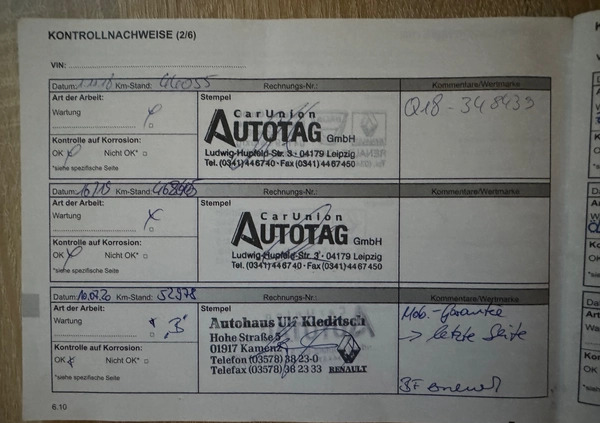 KONTROLLNACHWEISE (2/6)
VIN:
Datum: Km-Stand: Rechnungs-Nr.: Kommentare/Wertmarke
Art der Arbeit: Stempel
Q18 - 348439
Wartung
CarUnion
AUTOTAG GmbH
Kontrolle auf Korrosion:
Ludwig-Hupfeld-Str. 3 · 04179 Leipzig
OK Nicht OK*
Tel. (0341) 446740 · Fax (0341) 4467450
*siehe spezifische Seite
Datum: Km-Stand: Rechnungs-Nr.: Kommentare/Wertmarke
Art der Arbeit: Stempel
Wartung
CarUnion
AUTOTAG GmbH
Kontrolle auf Korrosion:
Ludwig-Hupfeld-Str. 3 · 04179 Leipzig
OK Nicht OK*
Tel. (0341) 446740 · Fax (0341) 4467450
*siehe spezifische Seite
Datum: 10.07.20 Km-Stand: 52978 Rechnungs-Nr.: Kommentare/Wertmarke
Art der Arbeit: Stempel
Mob.-Garantie
Wartung "B"
Autohaus Ulf Kleditsch
→ letzte Seite
Hohe Straße 5
Kontrolle auf Korrosion:
01917 Kamenz
OK Nicht OK*
Telefon (03578) 38 23-0
Telefax (03578) 38 23 33 RENAULT
*siehe spezifische Seite
BF erneuert
6.10